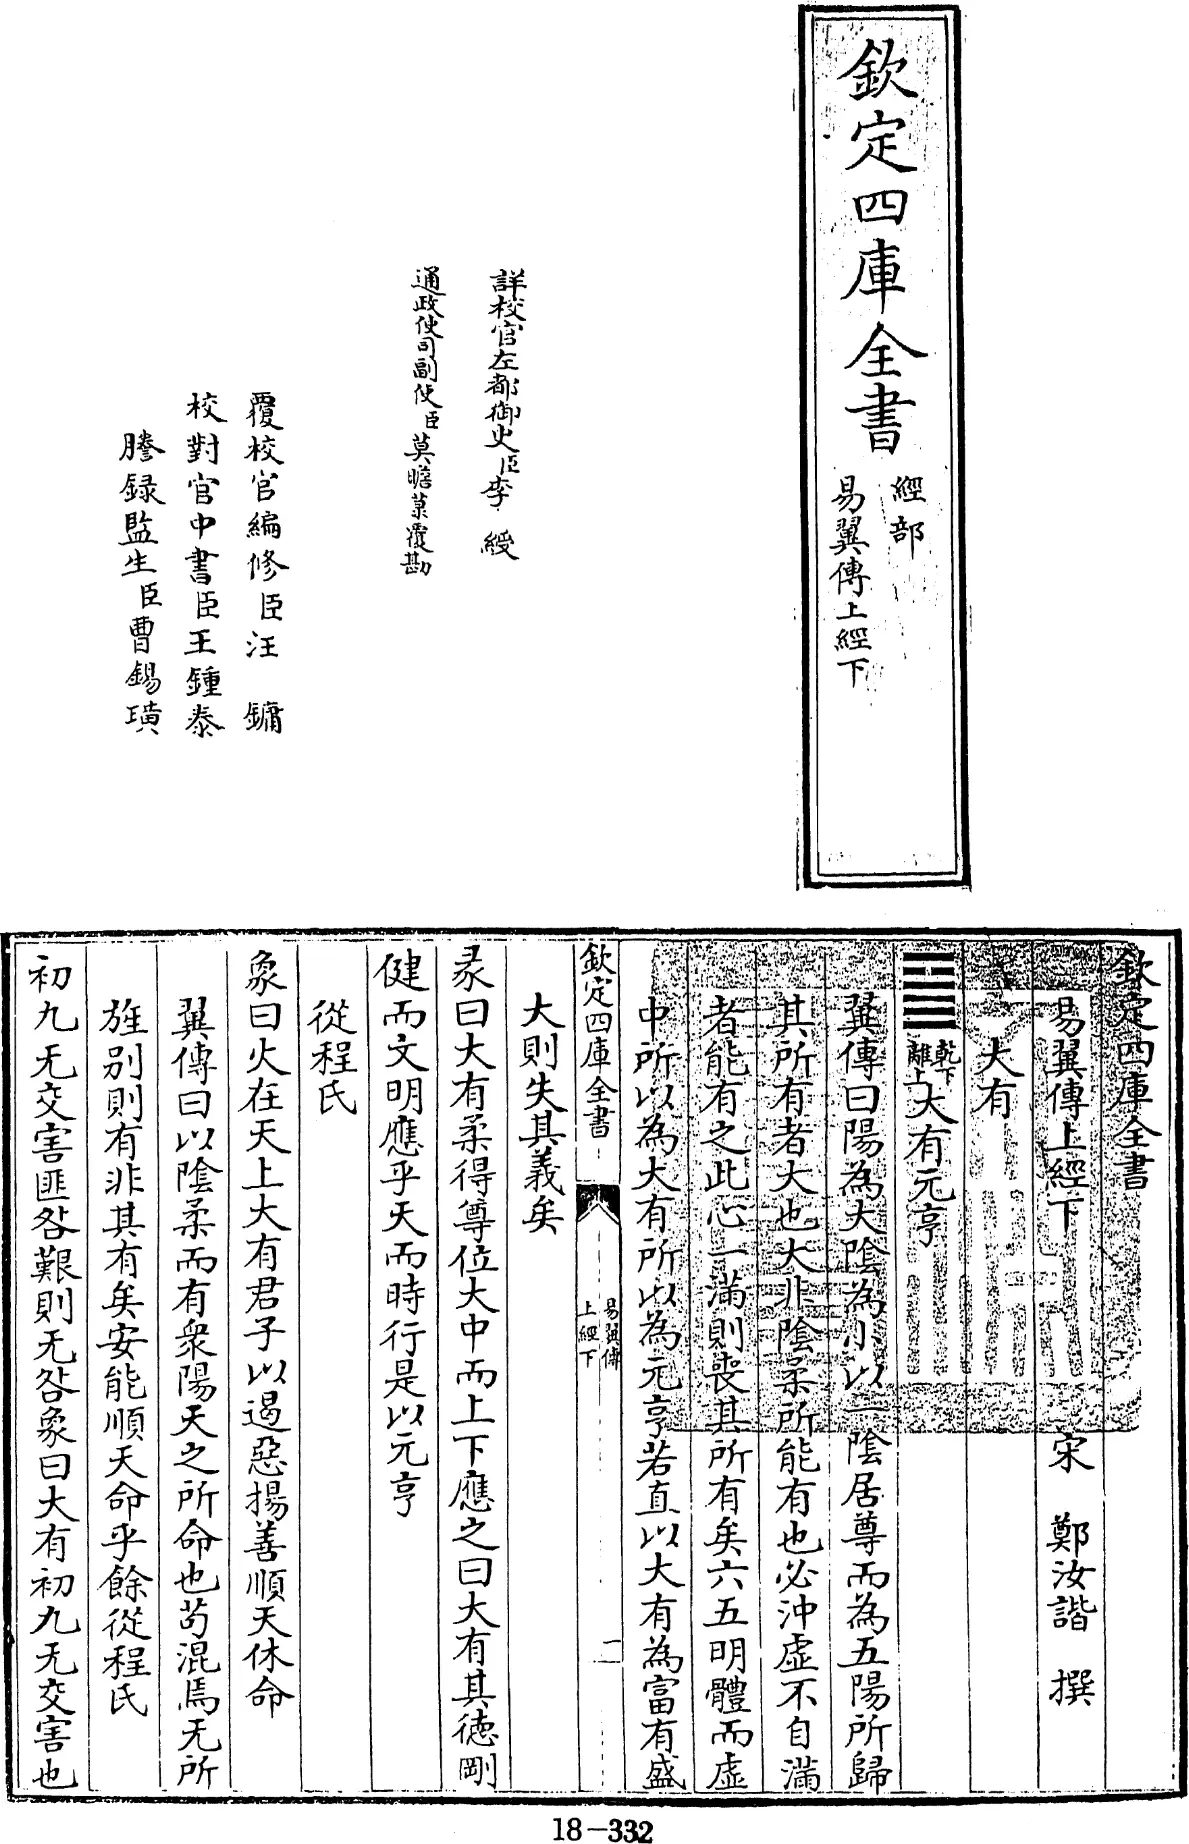 欽定四庫全書
經部
易翼傳上經下
詳校官左都御史臣李綬
通政使司副使臣莫瞻菉覆勘
覆校官編修臣汪鏞
校對官中書臣王鍾泰
謄錄監生臣曹錫璜
欽定四庫全書
易翼傳上經下 宋 鄭汝諧 撰
大有
乾下
離上
大有元亨
翼傳曰陽為大陰為小以一陰居尊而為五陽所歸
其所有者大也大非陰柔所能有也必沖虛不自滿
者能有之此心一滿則喪其所有矣六五明體而虛
中所以為大有所以為元亨若直以大有為富有盛
欽定四庫全書
易翼傳
上經下
二
大則失其義矣
彖曰大有柔得尊位大中而上下應之曰大有其德剛
健而文明應乎天而時行是以元亨
從程氏
象曰火在天上大有君子以遏惡揚善順天休命
翼傳曰以陰柔而有衆陽天之所命也苟混焉无所
旌别則有非其有矣安能順天命乎餘從程氏
初九无交害匪咎艱則无咎象曰大有初九无交害也
18-332